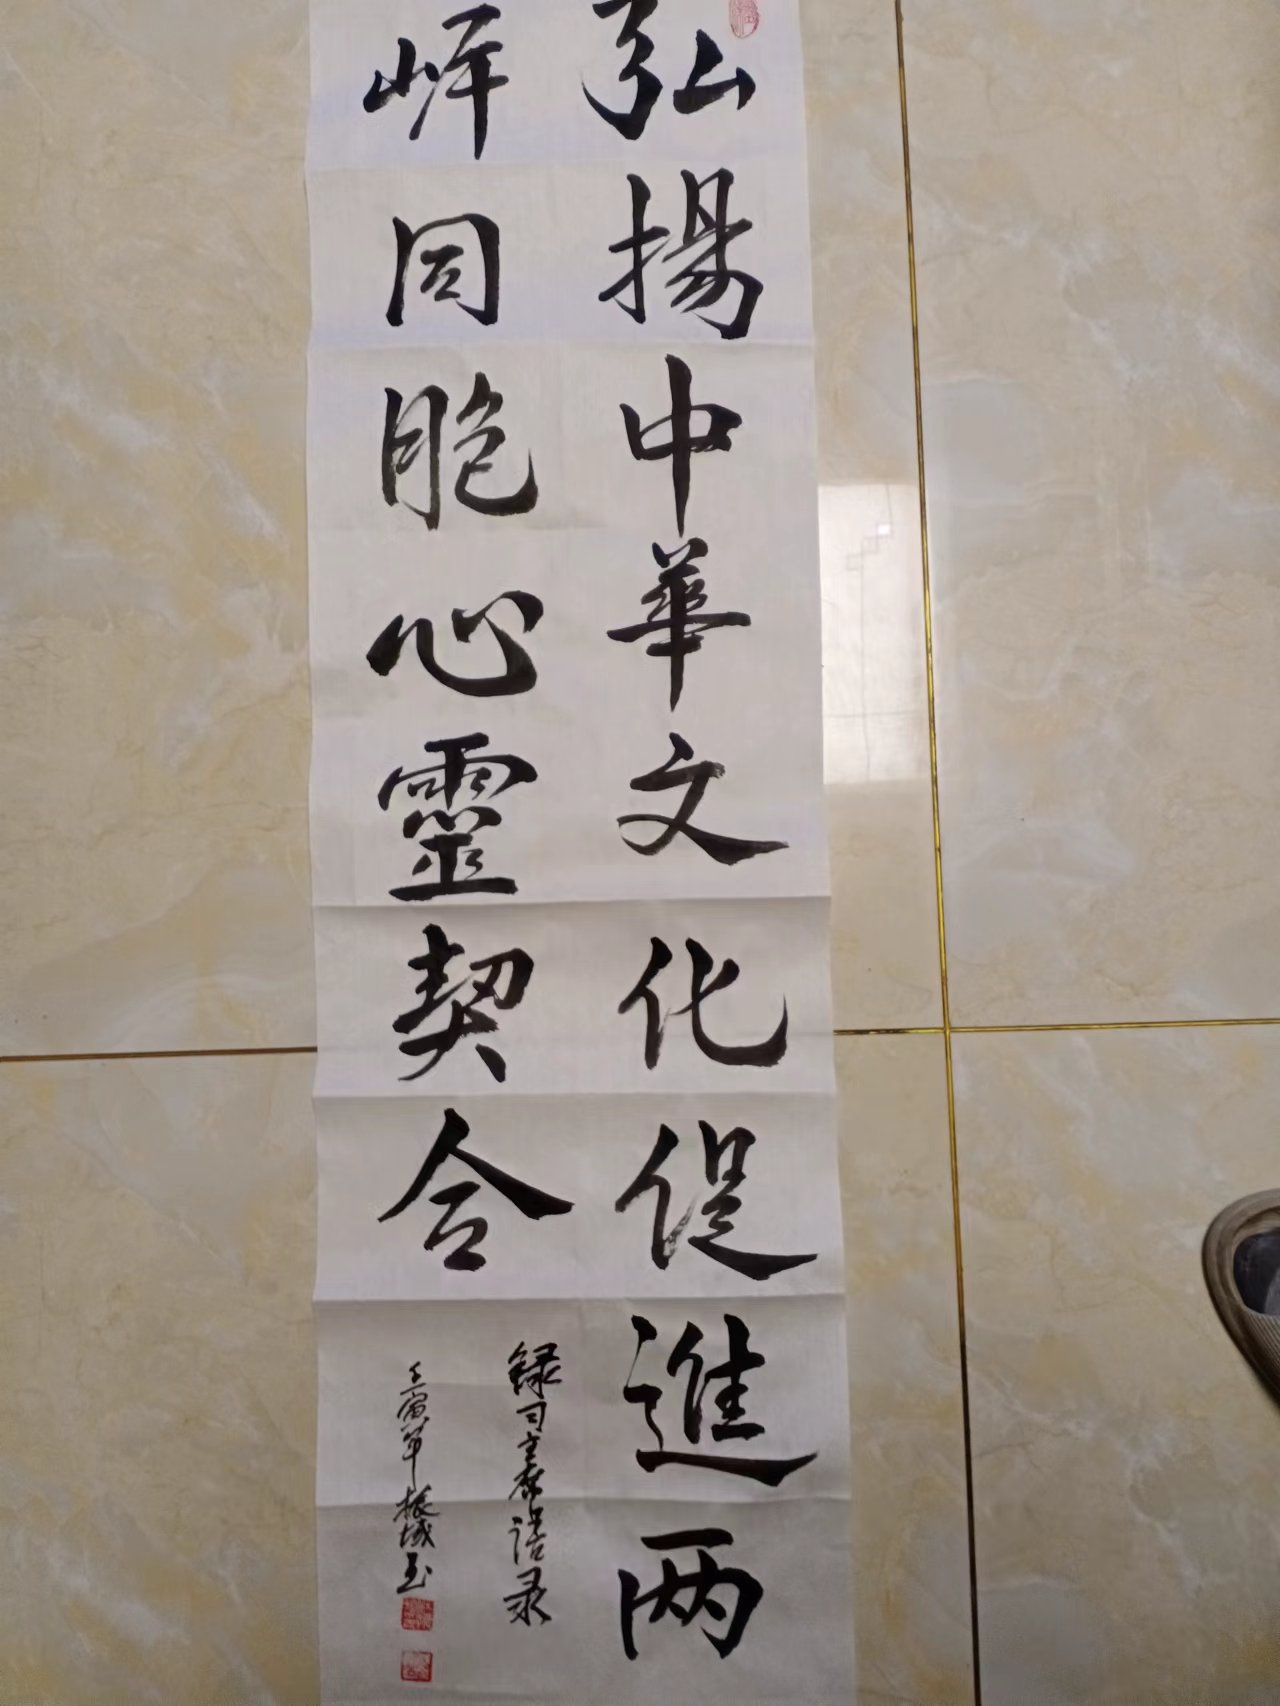 弘揚中華文化促進两
岸同胞心靈契合
録习主席语录
壬寅年 振城书